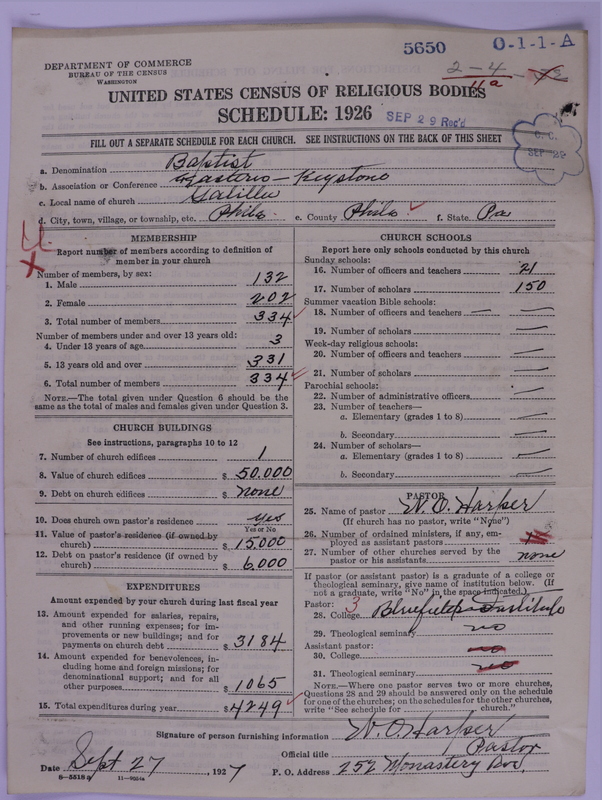 5650 0-1-1-A
DEPARTMENT OF COMMERCE
BUREAU OF THE CENSUS
WASHINGTON
2-4
11a
UNITED STATES CENSUS OF RELIGIOUS BODIES
SCHEDULE: 1926 SEP 29 Rec'd
FILL OUT A SEPARATE SCHEDULE FOR EACH CHURCH. SEE INSTRUCTIONS ON THE BACK OF THIS SHEET
C. C.
SEP 29
a. Denomination Baptist
b. Association or Conference Eastern - Keystone
c. Local name of church Galilee
d. City, town, village, or township, etc. Phila. e. County Phila. f. State Pa
MEMBERSHIP
Report number of members according to definition of
member in your church
Number of members, by sex:
1. Male 132
2. Female 202
3. Total number of members 334
Number of members under and over 13 years old:
4. Under 13 years of age 3
5. 13 years old and over 331
6. Total number of members 334
NOTE.—The total given under Question 6 should be the
same as the total of males and females given under Question 3.
CHURCH BUILDINGS
See instructions, paragraphs 10 to 12
7. Number of church edifices 1
8. Value of church edifices $ 50.000
9. Debt on church edifices $ none
10. Does church own pastor's residence yes
Yes or No
11. Value of pastor's residence (if owned by
church) $ 15,000
12. Debt on pastor's residence (if owned by
church) $ 6,000
EXPENDITURES
Amount expended by your church during last fiscal year
13. Amount expended for salaries, repairs,
and other running expenses; for im-
provements or new buildings; and for
payments on church debt $ 3184
14. Amount expended for benevolences, in-
cluding home and foreign missions; for
denominational support; and for all
other purposes $ 1065
15. Total expenditures during year $ 4249
CHURCH SCHOOLS
Report here only schools conducted by this church
Sunday schools:
16. Number of officers and teachers 21
17. Number of scholars 150
Summer vacation Bible schools:
18. Number of officers and teachers —
19. Number of scholars —
Week-day religious schools:
20. Number of officers and teachers —
21. Number of scholars —
Parochial schools:
22. Number of administrative officers —
23. Number of teachers—
a. Elementary (grades 1 to 8) —
b. Secondary —
24. Number of scholars—
a. Elementary (grades 1 to 8) —
b. Secondary —
PASTOR
25. Name of pastor W. O. Harper
(If church has no pastor, write "None")
26. Number of ordained ministers, if any, em-
ployed as assistant pastors
27. Number of other churches served by the
pastor or his assistants none
If pastor (or assistant pastor) is a graduate of a college or
theological seminary, give name of institution below. (If
not a graduate, write "No" in the space indicated.)
Pastor: 3
28. College Bluefield Institute
29. Theological seminary no
Assistant pastor:
30. College no
31. Theological seminary no
NOTE.—Where one pastor serves two or more churches,
Questions 28 and 29 should be answered only on the schedule
for one of the churches; on the schedules for the other churches,
write "See schedule for church."
Signature of person furnishing information W. O. Harper
Official title Pastor
Date Sept 27, 1927 P. O. Address 252 Monastery Ave,
8-5518a 11-9204a